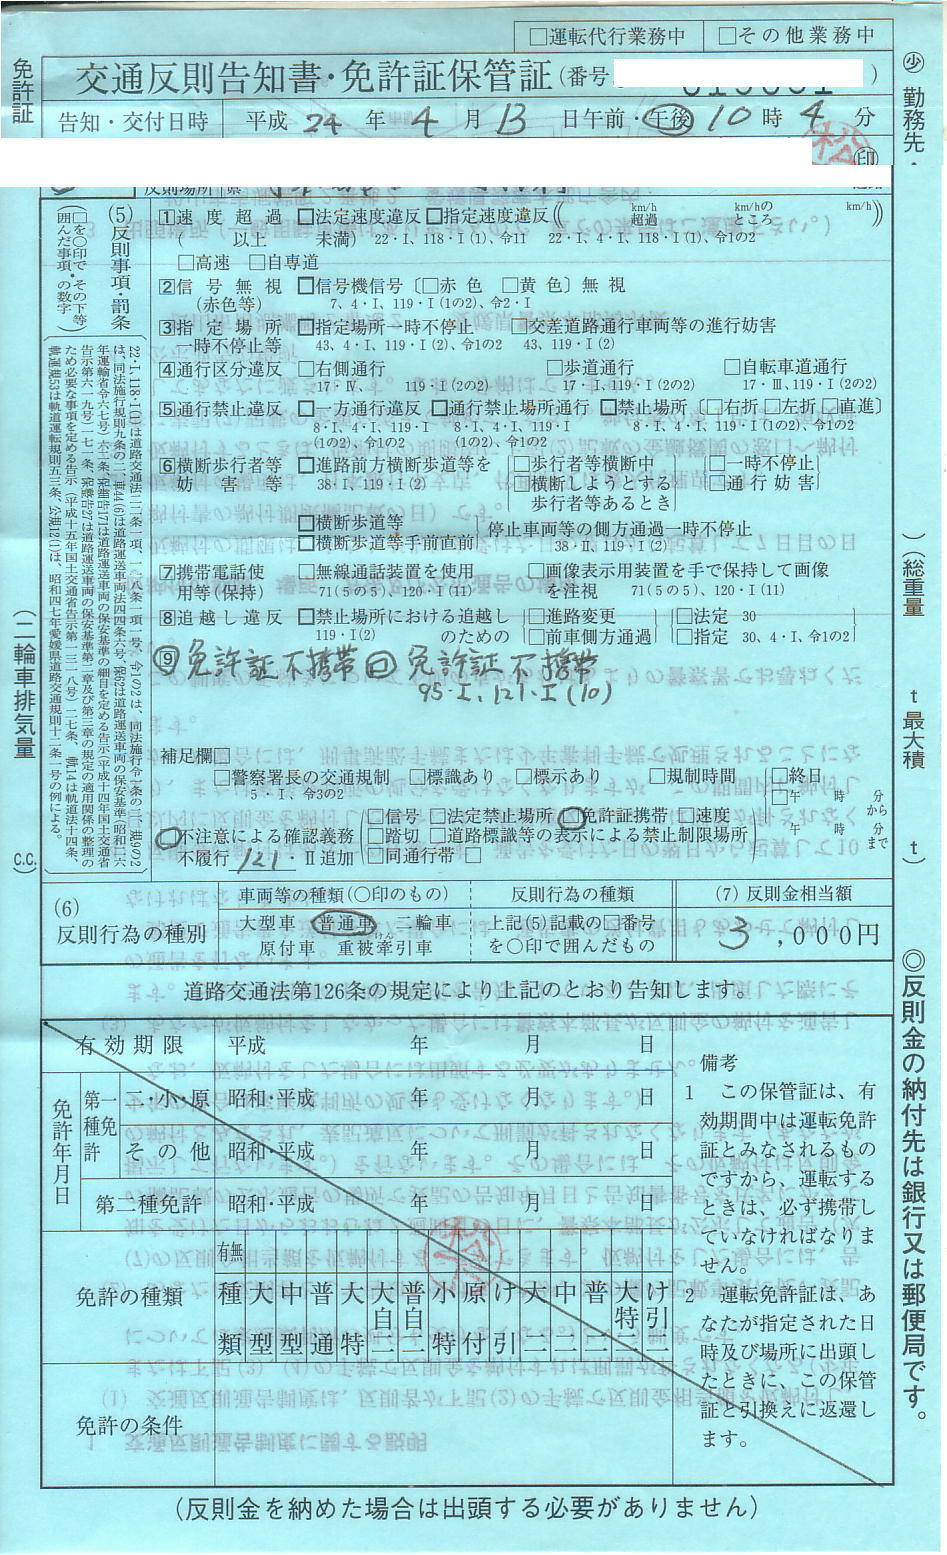 □運転代行業務中 □その他業務中
免許証
交通反則告知書・免許証保管証(番号 )
告知・交付日時 平成24年4月13日午前・午後10時4分
松
印
反則場所
(5)反則事項・罰条
(□を○印で囲んだ事項・その下等の数字)
1速度超過 □法定速度違反 □指定速度違反 (km/h超過 km/hのところ km/h)
( 以上 未満) 22・Ⅰ、118・Ⅰ(1)、令11 22・Ⅰ、4・Ⅰ、118・Ⅰ(1)、令1の2
□高速 □自専道
2信号無視 □信号機信号〔□赤色 □黄色〕無視
(赤色等) 7、4・Ⅰ、119・Ⅰ(1の2)、令2・Ⅰ
3指定場所 □指定場所一時不停止 □交差道路通行車両等の進行妨害
一時不停止等 43、4・Ⅰ、119・Ⅰ(2)、令1の2 43、119・Ⅰ(2)
4通行区分違反 □右側通行 □歩道通行 □自転車道通行
17・Ⅳ、119・Ⅰ(2の2) 17・Ⅰ、119・Ⅰ(2の2) 17・Ⅲ、119・Ⅰ(2の2)
5通行禁止違反 □一方通行違反 □通行禁止場所通行 □禁止場所〔□右折 □左折 □直進〕
8・Ⅰ、4・Ⅰ、119・Ⅰ 8・Ⅰ、4・Ⅰ、119・Ⅰ 8・Ⅰ、4・Ⅰ、119・Ⅰ(1の2)、令1の2
(1の2)、令1の2 (1の2)、令1の2
6横断歩行者等 □進路前方横断歩道等を □歩行者等横断中 □一時不停止
妨害等 38・Ⅰ、119・Ⅰ(2) □横断しようとする □通行妨害
歩行者等あるとき
□横断歩道等 停止車両等の側方通過一時不停止
□横断歩道等手前直前 38・Ⅱ、119・Ⅰ(2)
7携帯電話使 □無線通話装置を使用 □画像表示用装置を手で保持して画像
用等(保持) 71(5の5)、120・Ⅰ(11) を注視 71(5の5)、120・Ⅰ(11)
8追越し違反 □禁止場所における追越し □進路変更 □法定 30
119・Ⅰ(2) のための □前車側方通過 □指定 30、4・Ⅰ、令1の2
9 免許証不携帯 □ 免許証不携帯
95・Ⅰ、121・Ⅰ(10)
補足欄□
□警察署長の交通規制 □標識あり □標示あり □規制時間 □終日
5・Ⅰ、令3の2 □午 時 分から
午 時 分まで
□信号 □法定禁止場所 □免許証携帯 □速度
□不注意による確認義務 □踏切 □道路標識等の表示による禁止制限場所
不履行 121・Ⅱ追加 □同通行帯 □
(6)
反則行為の種別
車両等の種類(○印のもの) 反則行為の種類 (7) 反則金相当額
大型車 普通車 二輪車 上記(5)記載の□番号 3,000円
原付車 重被牽引車 を○印で囲んだもの
道路交通法第126条の規定により上記のとおり告知します。
有効期限 平成 年 月 日
免許年月日
第一種免許
二・小・原 昭和・平成 年 月 日
その他 昭和・平成 年 月 日
第二種免許 昭和・平成 年 月 日
免許の種類
有無
種類 大型 中型 普通 大特 大自二 普自二 小特 原付 け引 大二 中二 普二 大特二 け引二
免許の条件
備考
1 この保管証は、有
効期間中は運転免許
証とみなされるもの
ですから、運転する
ときは、必ず携帯し
ていなければなりま
せん。
2 運転免許証は、あ
なたが指定された日
時及び場所に出頭し
たときに、この保管
証と引換えに返還し
ます。
(反則金を納めた場合は出頭する必要がありません)
少
勤務先・
)(総重量 t 最大積 t)
(二輪車排気量 c.c.)
◎反則金の納付先は銀行又は郵便局です。